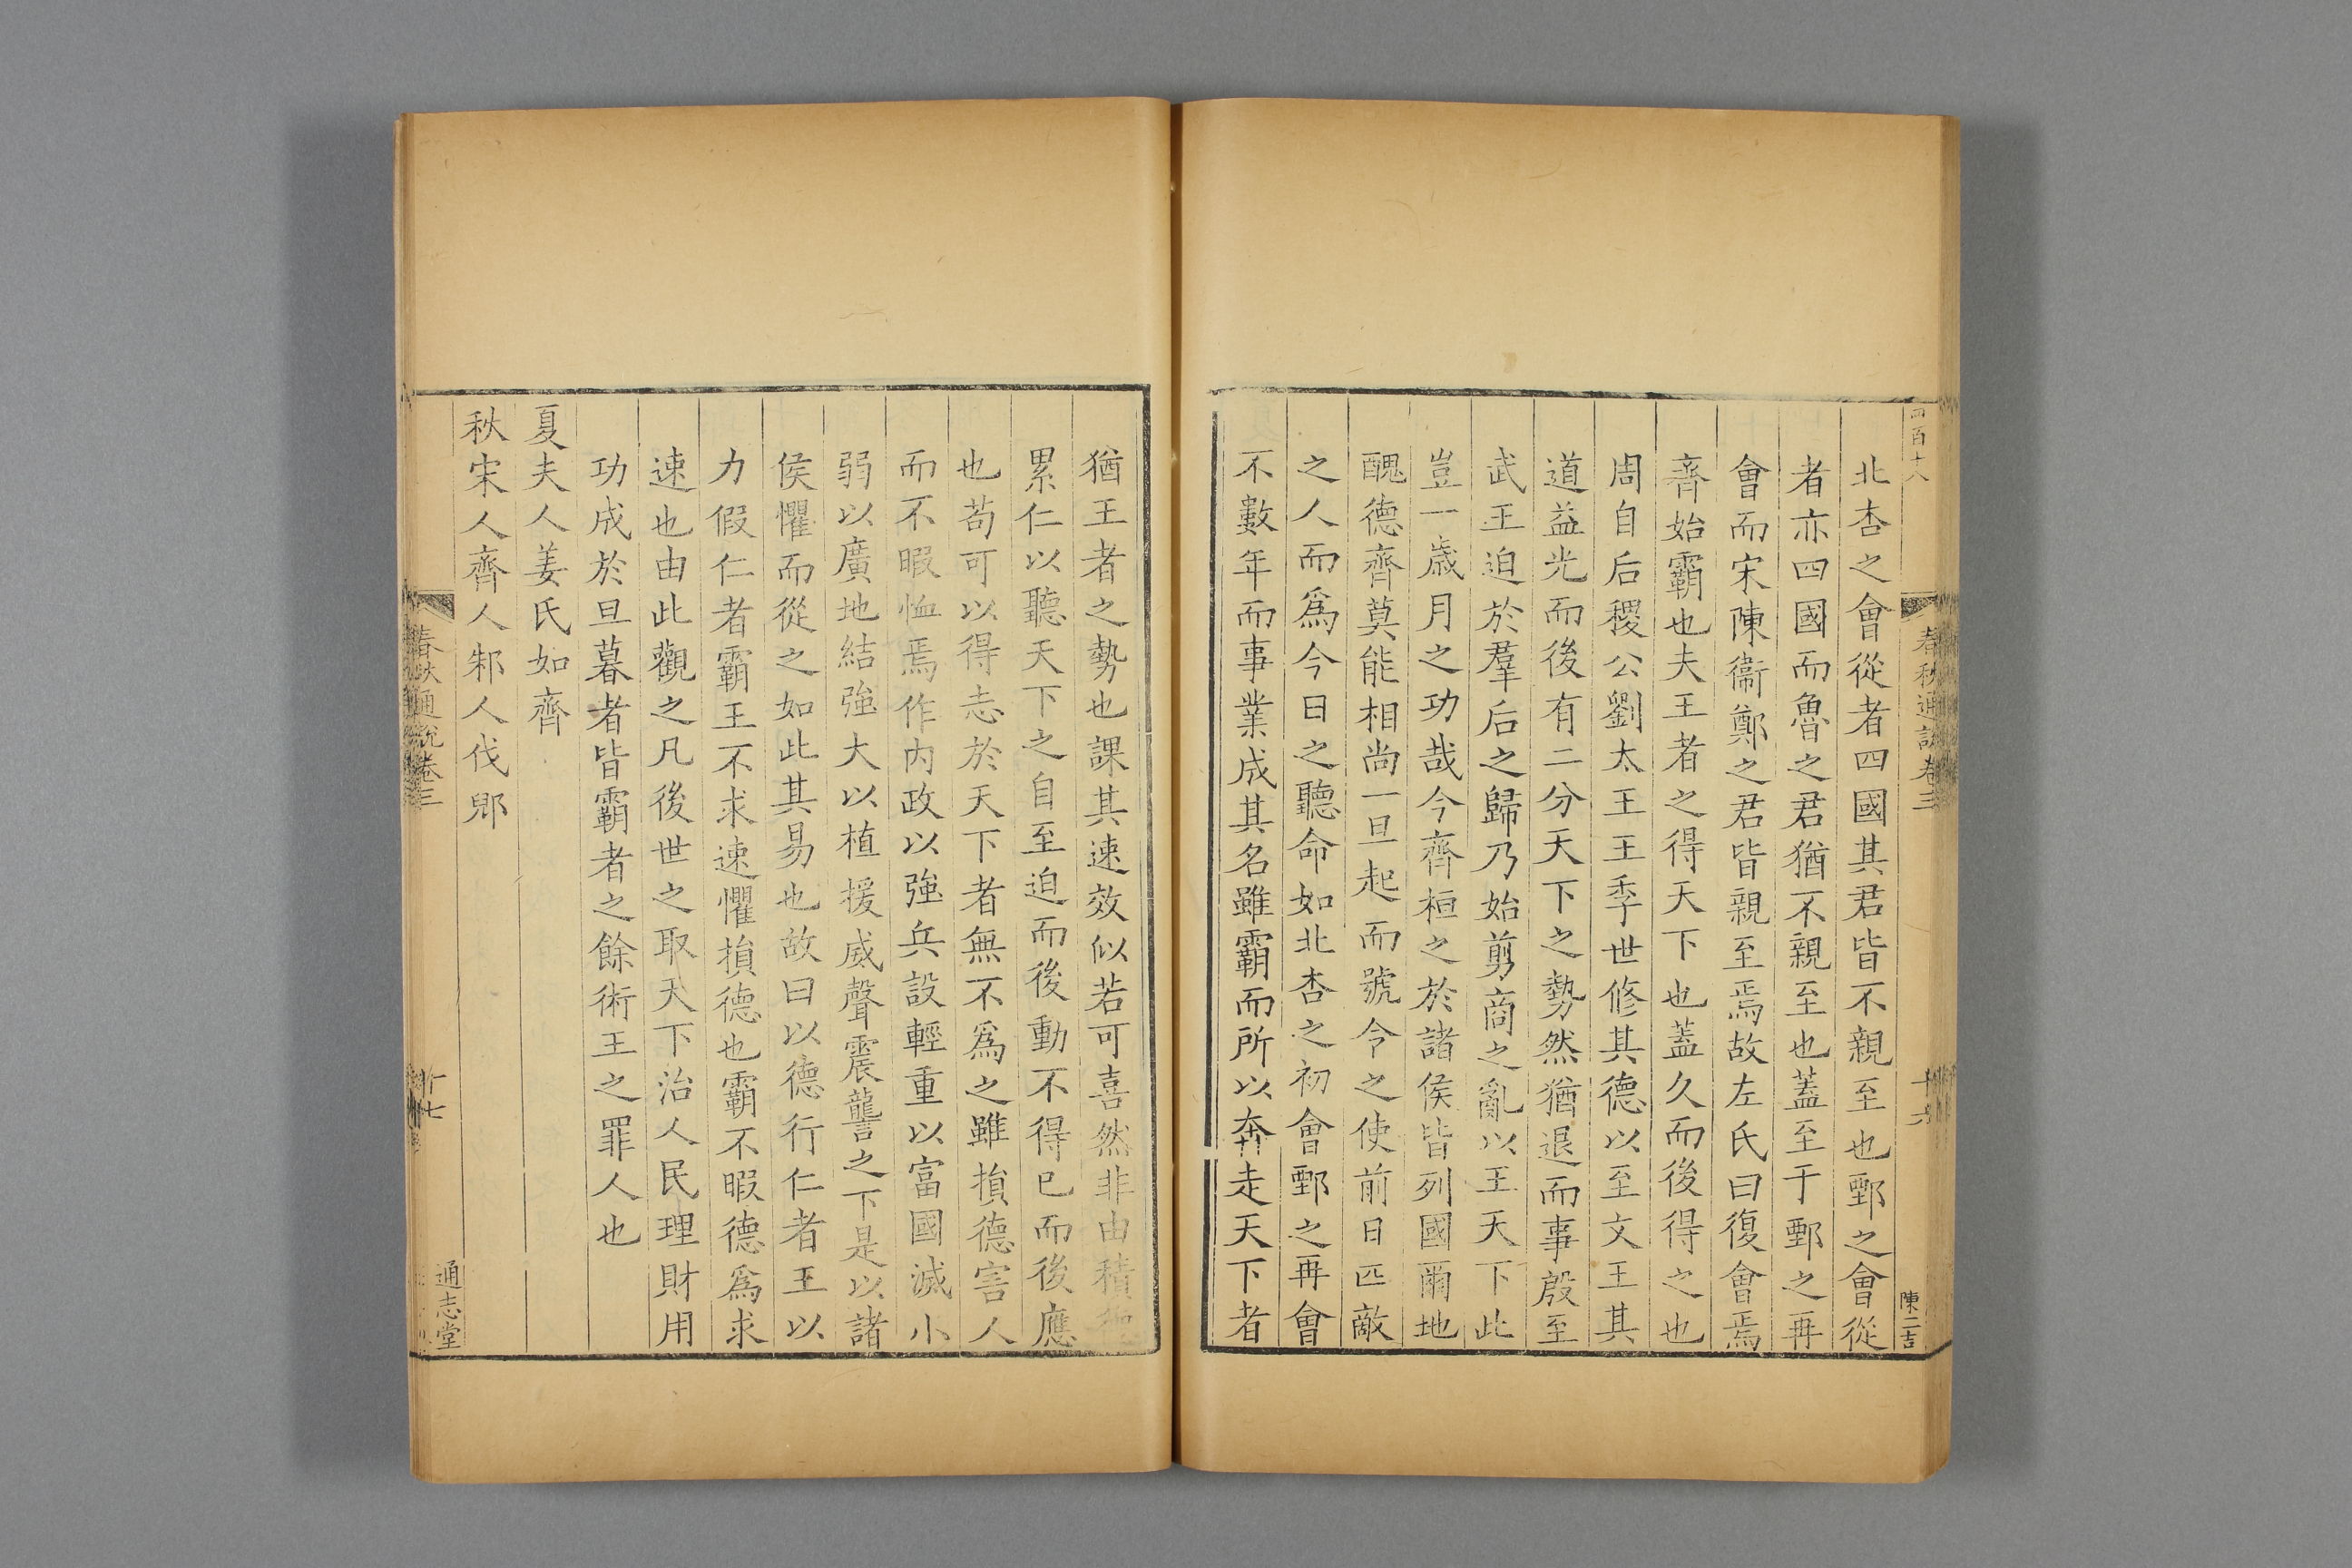 四百十八
春秋通說卷三
十六
陳二吉
北杏之會從者四國其君皆不親至也鄄之會從
者亦四國而魯之君猶不親至也蓋至于鄄之再
會而宋陳衞鄭之君皆親至焉故左氏曰復會焉
齊始霸也夫王者之得天下也蓋久而後得之也
周自后稷公劉太王王季世修其德以至文王其
道益光而後有二分天下之勢然猶退而事殷至
武王迫於羣后之歸乃始剪商之亂以王天下此
豈一歲月之功哉今齊桓之於諸侯皆列國爾地
醜德齊莫能相尚一旦起而號令之使前日匹敵
之人而爲今日之聽命如北杏之初會鄄之再會
不數年而事業成其名雖霸而所以奔走天下者
猶王者之勢也課其速效似若可喜然非由積
累仁以聽天下之自至迫而後動不得已而後應
也苟可以得志於天下者無不爲之雖損德害人
而不暇恤焉作内政以強兵設輕重以富國滅小
弱以廣地結強大以植援威聲震讋之下是以諸
侯懼而從之如此其易也故曰以德行仁者王以
力假仁者霸王不求速懼損德也霸不暇德爲求
速也由此觀之凡後世之取天下治人民理財用
功成於旦暮者皆霸者之餘術王之罪人也
夏夫人姜氏如齊
秋宋人齊人邾人伐郳
春秋通說卷三
十七
通志堂